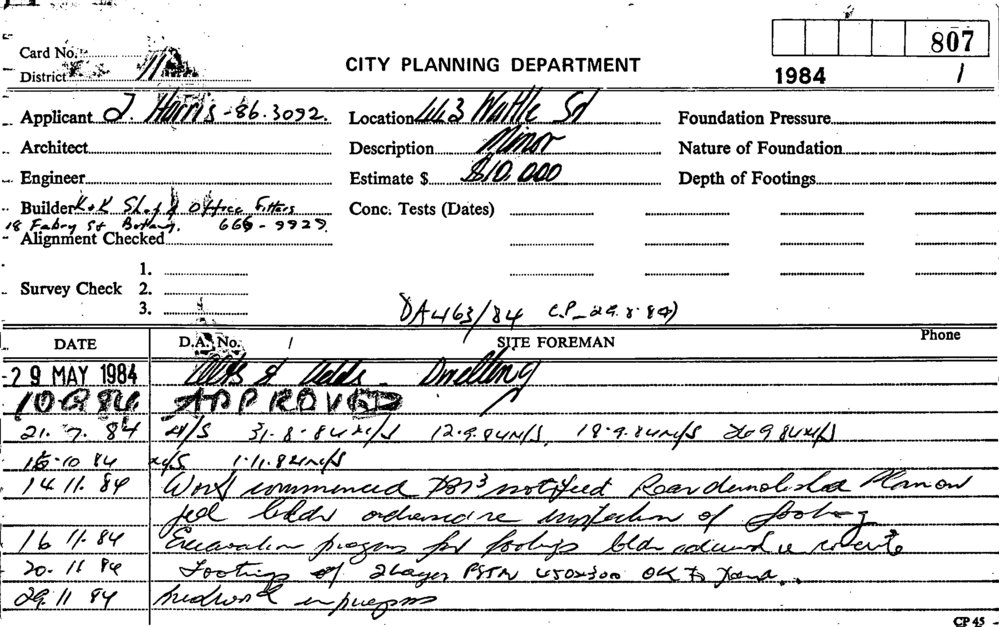 807
Card No.
District
CITY PLANNING DEPARTMENT
1984 1
Applicant J. Harris - 86.3092. Location 463 Wattle St Foundation Pressure
Architect Description Minor Nature of Foundation
Engineer Estimate $ $10,000 Depth of Footings
Builder K & K Shop & Office Fitters Conc. Tests (Dates)
18 St Botany. 666-9929.
Alignment Checked
1.
Survey Check 2.
3.
DA 463/84
DATE D.A. No. / SITE FOREMAN Phone
29 MAY 1984 Alts & Adds. Dwelling
10 9 84 APPROVED
21. 7. 84 N/S 31-8-84 N/S 12.9.84 N/S. 18-9.84 N/S 26 9 84 N/S
10 84 N/S 1-11.84 N/S
14.11.84 Work commenced notified Rear demolished Plan on
job bldr ordinance inspection of footing
16 11.84 Excavation progress for footings bldr advised re concrete
20. 11 84 Footings of 2 layer 450x300 OK to pour..
29.11 84 in progress
CP 45